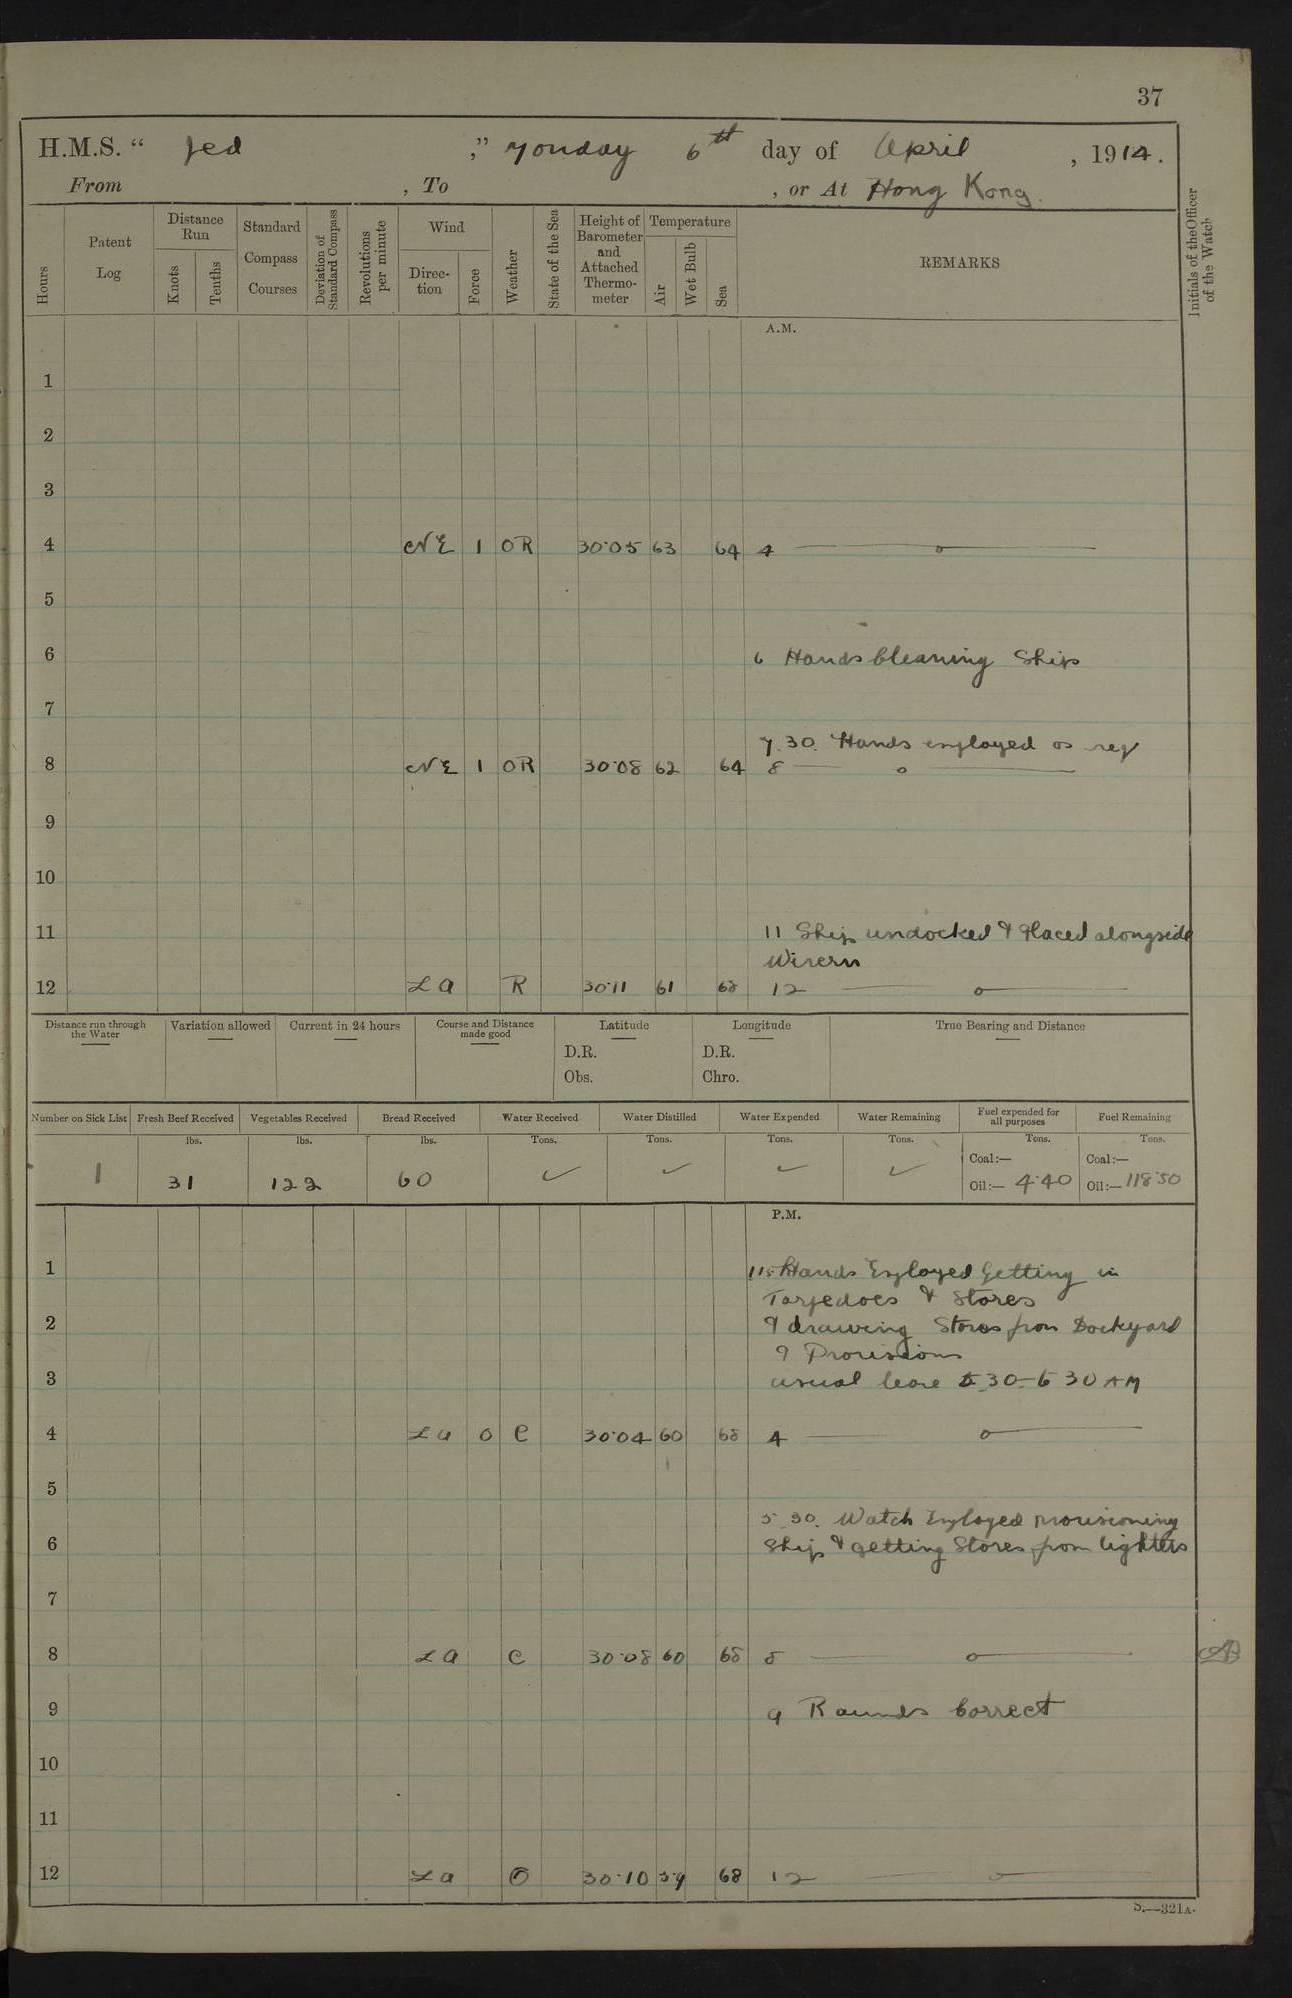 37
H.M.S. “ Jed ,” Monday 6th day of April , 1914.
From , To , or At Hong Kong.
Hours
Patent Log
Distance Run
Knots
Tenths
Standard Compass Courses
Deviation of Standard Compass
Revolutions per minute
Wind
Direc-tion
Force
Weather
State of the Sea
Height of Barometer and Attached Thermo-meter
Temperature
Air
Wet Bulb
Sea
REMARKS
Initials of the Officer of the Watch
A.M.
1
2
3
4 NE 1 OR 30·05 63 64 4 —— o ——
5
6 6 Hands Cleaning Ship
7
7.30. Hands employed as req
8 NE 1 OR 30·08 62 64 8 —— o ——
9
10
11 11 Ship undocked & placed alongside
Wivern
12 La R 30·11 61 68 12 —— o ——
Distance run through the Water
Variation allowed
Current in 24 hours
Course and Distance made good
Latitude
D.R.
Obs.
Longitude
D.R.
Chro.
True Bearing and Distance
Number on Sick List
Fresh Beef Received
Vegetables Received
Bread Received
Water Received
Water Distilled
Water Expended
Water Remaining
Fuel expended for all purposes
Fuel Remaining
lbs. lbs. lbs. Tons. Tons. Tons. Tons. Tons. Tons.
Coal:— Coal:—
1 31 122 60 ✓ ✓ ✓ ✓ Oil:— 4·40 Oil:— 118·50
P.M.
1 115 Hands Employed Getting in
Torpedoes & Stores
2 & drawing Stores from Dockyard
& Provisions
3 usual leave 5.30 – 6 30 AM
4 La 0 C 30·04 60 68 4 —— o ——
5
5.30. Watch Employed provisioning
6 Ship & getting Stores from lighters
7
8 La C 30·08 60 68 8 —— o ——
9 9 Rounds Correct
10
11
12 La O 30·10 59 68 12 —— o ——
S.—321A.